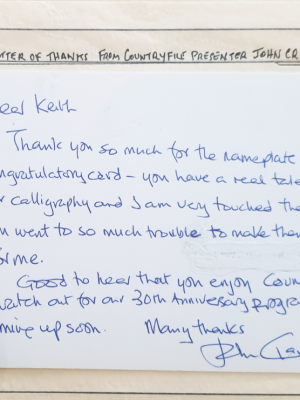 TTER OF THANKS FROM COUNTRYFILE PRESENTER JOHN CR
ear Keith
Thank you so much for the nameplate
ngratulatory card - you have a real tale
r calligraphy and I am very touched tha
u went to so much trouble to make them
r me.
Good to hear that you enjoy Coun
watch out for our 30th Anniversary progra
ming up soon. Many thanks
John Cra